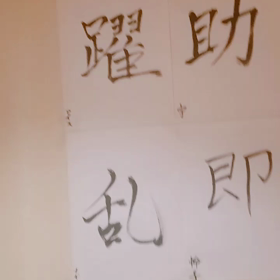 躍助
乱即